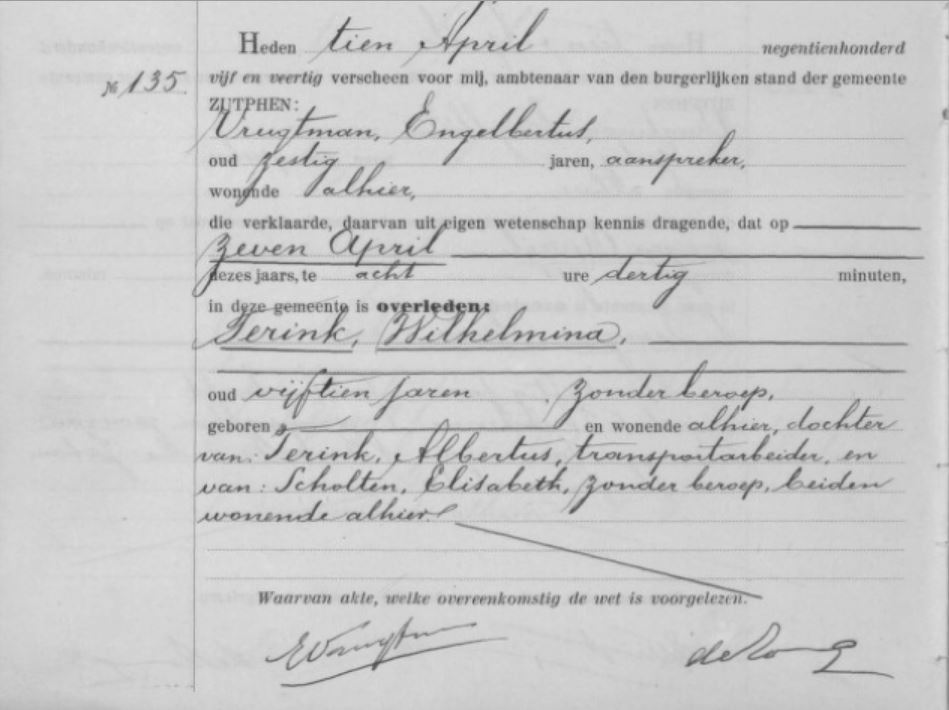 Heden tien April negentienhonderd
№ 135. vijf en veertig verscheen voor mij, ambtenaar van den burgerlijken stand der gemeente
ZUTPHEN:
Vrugtman, Engelbertus,
oud zestig jaren, aanspreker,
wonende alhier,
die verklaarde, daarvan uit eigen wetenschap kennis dragende, dat op
zeven April
dezes jaars, te acht ure dertig minuten,
in deze gemeente is overleden:
Terink, Wilhelmina,
oud vijftien jaren, zonder beroep,
geboren en wonende alhier, dochter
van: Terink, Albertus, transportarbeider, en
van: Scholten, Elisabeth, zonder beroep, beiden
wonende alhier.
Waarvan akte, welke overeenkomstig de wet is voorgelezen.
EVrugtman